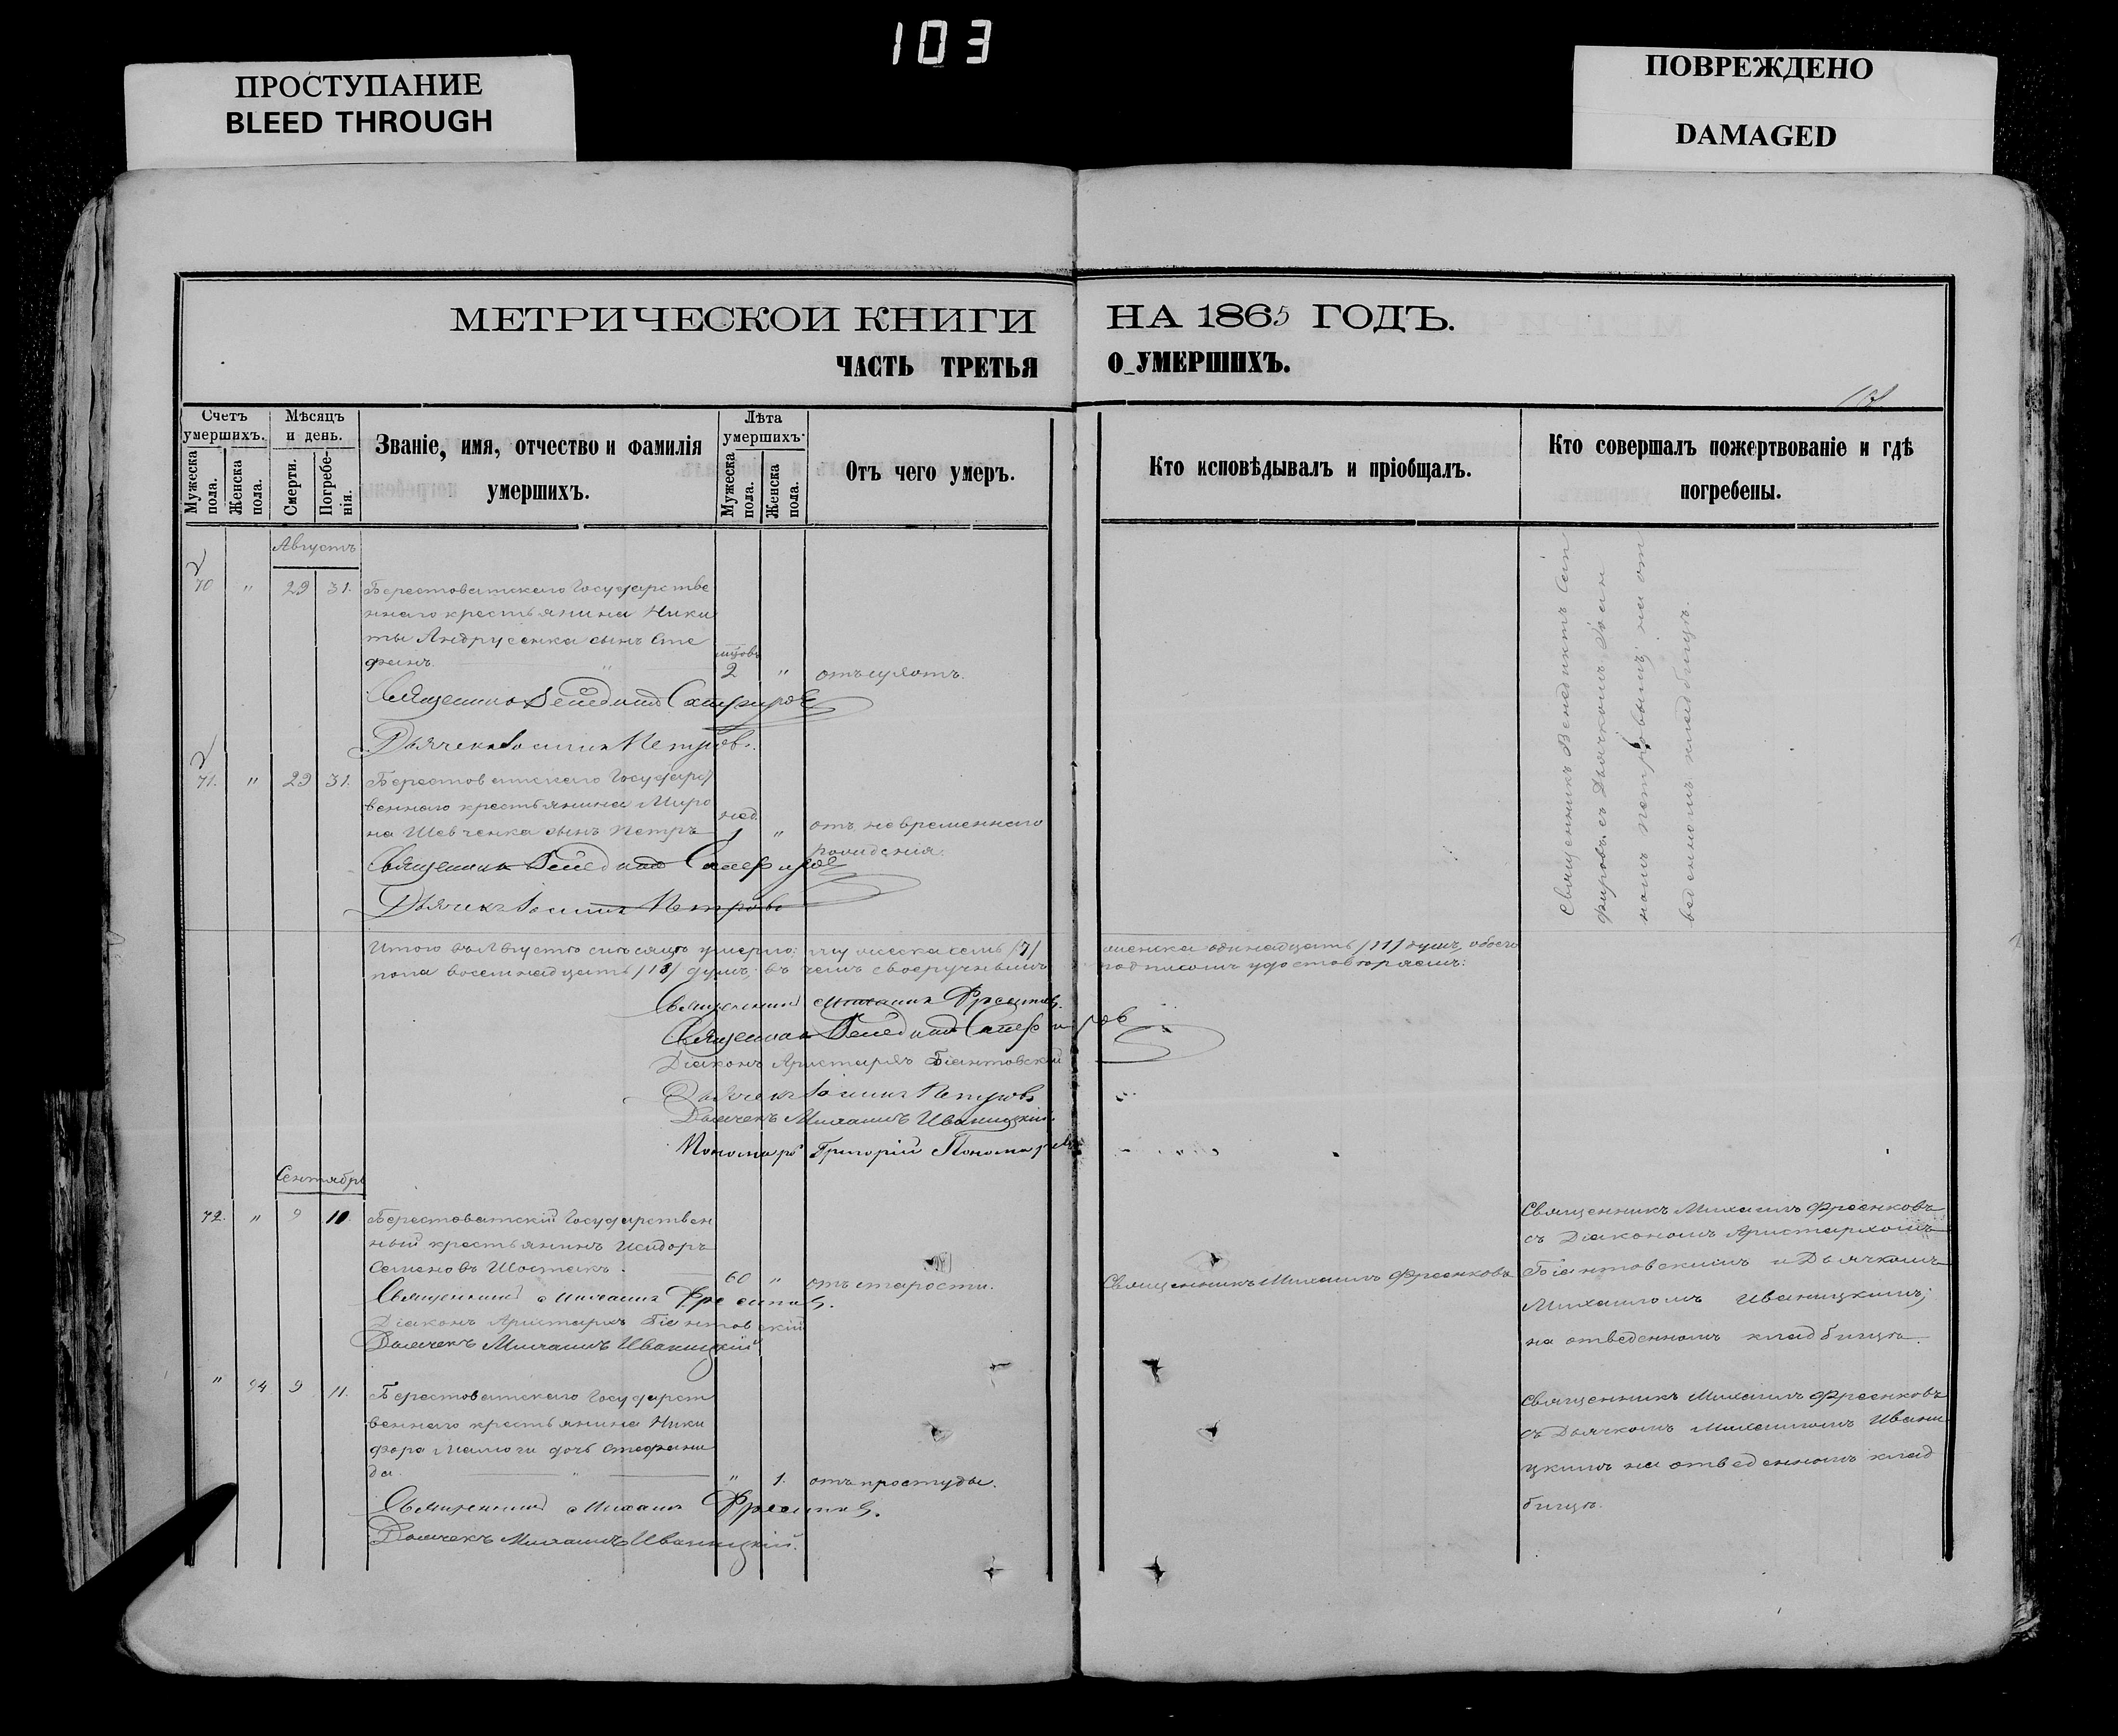 103
ПРОСТУПАНИЕ
BLEED THROUGH
ПОВРЕЖДЕНО
DAMAGED
МЕТРИЧЕСКОЙ КНИГИ НА 1865 ГОДЪ.
ЧАСТЬ ТРЕТЬЯ О УМЕРШИХЪ.
Счетъ умершихъ.
Мужеска пола.
Женска пола.
Мѣсяцъ и день.
Смерти.
Погребенія.
Званіе, имя, отчество и фамилія
умершихъ.
Лѣта умершихъ.
Мужеска пола.
Женска пола.
Отъ чего умеръ.
Кто исповѣдывалъ и пріобщалъ.
Кто совершалъ пожертвованіе и гдѣ
погребены.
Августъ
70 " 29 31. Берестоватскаго Государстве
ннаго крестьянина Ники
ты Андрусенка сынъ Сте
фанъ. 2 "
Священникъ Венедиктъ Сапфировъ
Дьячекъ Іоаннъ Петровъ.
71. " 29 31. Берестоватскаго Государст
веннаго крестьянина Миро
на Шевченка сынъ Петръ нед. 1 " отъ невременнаго
рожденія.
Священникъ Венедиктъ Сапфировъ
Дьячекъ Іоаннъ Петровъ
Священникъ Венедиктъ Сап
фировъ съ Дьячкомъ Іоан
номъ Петровымъ; на от
веденномъ кладбищѣ.
Итого въ Августѣ мѣсяцѣ умерло: мужеска семь /7/ женска одинадцать /11/ душъ, обоего
пола восемнадцать /18/ душъ; въ чемъ своеручнымъ подписомъ удостовѣряемъ:
Священникъ Михаилъ Фреенковъ.
Священникъ Венедиктъ Сапфировъ
Діаконъ Аристархъ Біантовскій
Дьячекъ Іоаннъ Петровъ
Дьячекъ Михаилъ Иваницкій.
Пономарь Григорій Пономаревъ
Сентябрь
72. " 9 10. Берестоватскій Государствен
ный крестьянинъ Исидоръ
Семеновъ Шостакъ. 60 " отъ старости.
Священникъ Михаилъ Фреенковъ.
Діаконъ Аристархъ Біантовскій
Дьячекъ Михаилъ Иваницкій
Священникъ Михаилъ Фреенковъ
Священникъ Михаилъ Фреенковъ
съ Діакономъ Аристархомъ
Біантовскимъ и Дьячкомъ
Михаиломъ Иваницкимъ;
на отведенномъ кладбищѣ.
" 94 9 11. Берестоватскаго Государст
веннаго крестьянина Ники
фора Малюги дочь Стефани
да. " 1. отъ простуды.
Священникъ Михаилъ Фреенковъ.
Дьячекъ Михаилъ Иваницкій.
Священникъ Михаилъ Фреенковъ
съ Дьячкомъ Михаиломъ Ивани
цкимъ на отведенномъ клад
бищѣ.